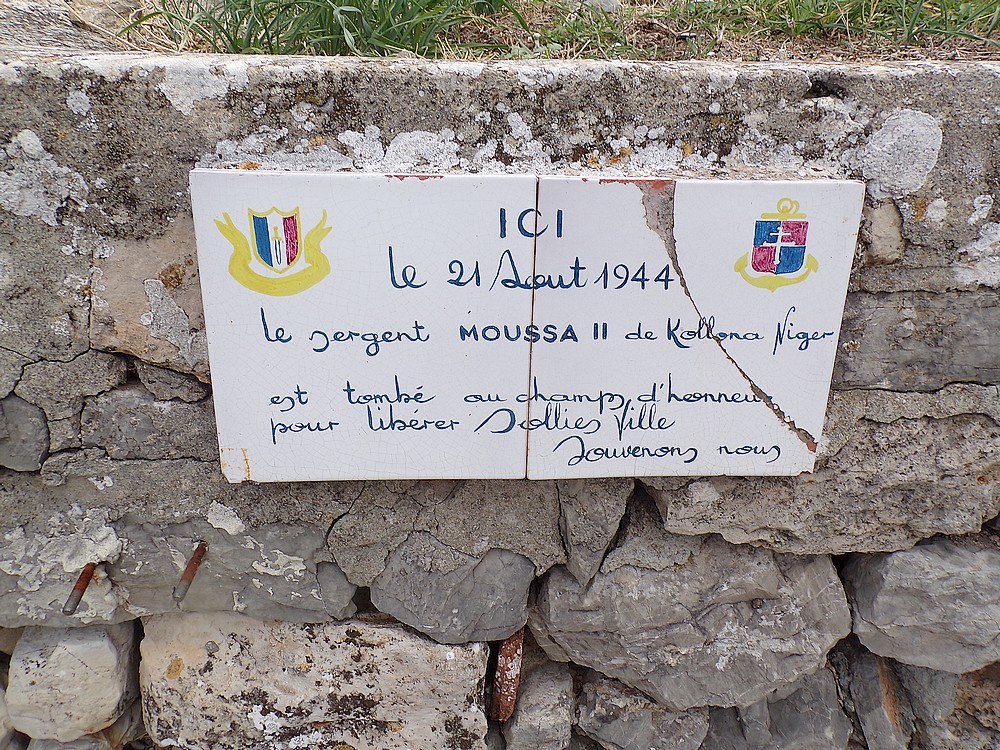 ICI
le 21 Aout 1944
le sergent MOUSSA II de Kollona Niger
est tombé au champs d'honneur
pour libérer Solliès Ville
Souvenons nous